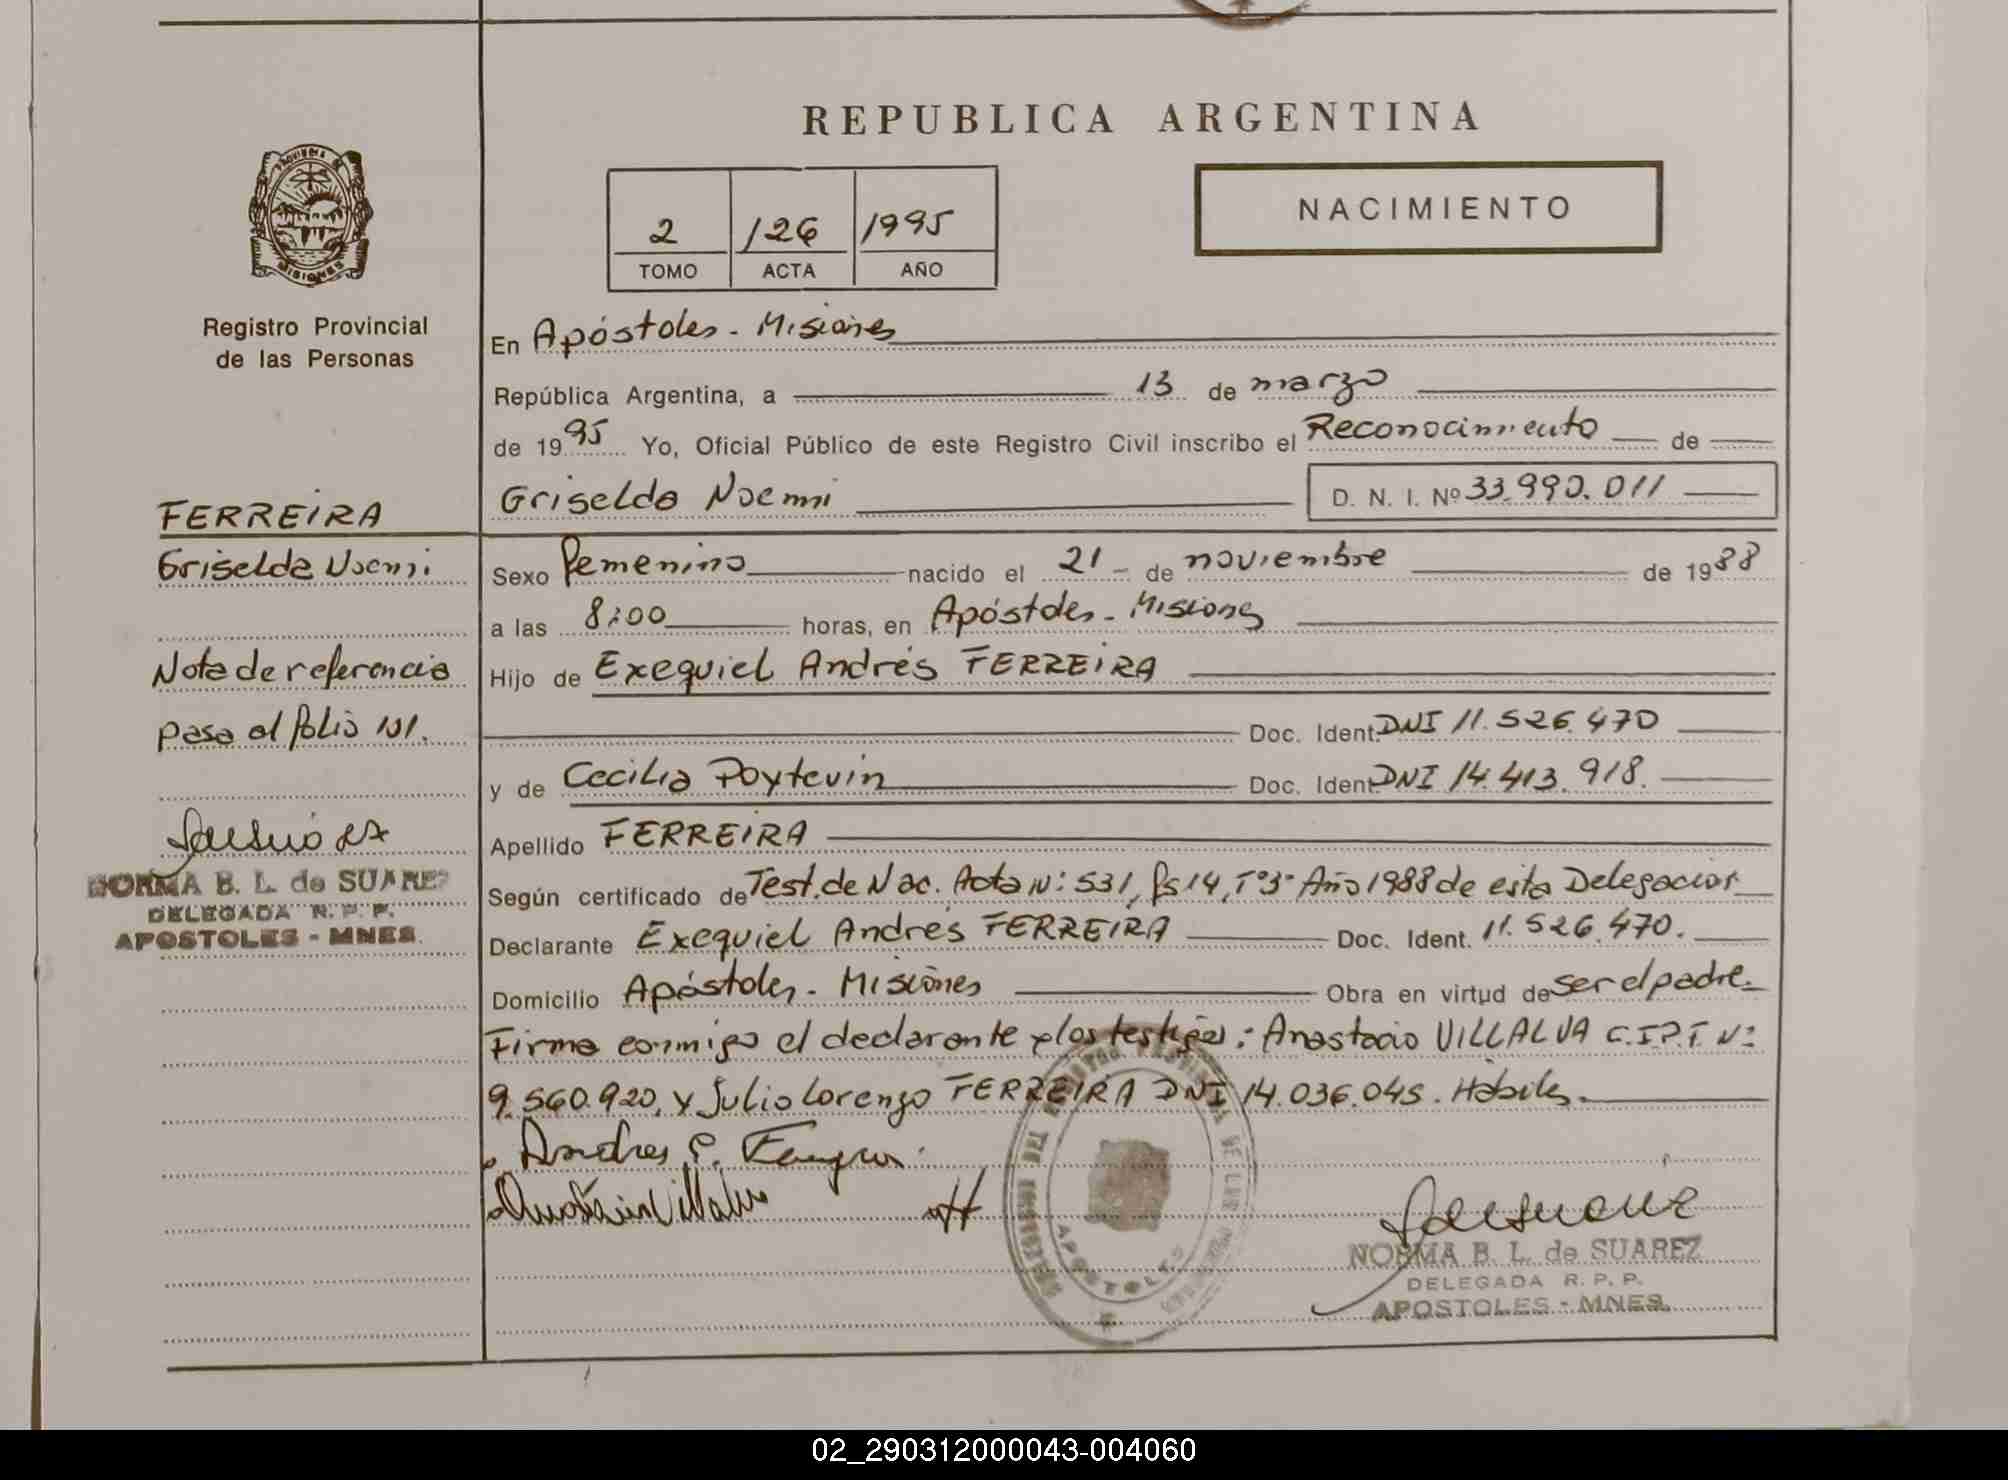 REPUBLICA ARGENTINA
PROVINCIA DE
MISIONES
Registro Provincial
de las Personas
2 126 1995
TOMO ACTA AÑO
NACIMIENTO
En Apóstoles - Misiones
República Argentina, a 13 de marzo
de 1995 Yo, Oficial Público de este Registro Civil inscribo el Reconocimiento de
Griselda Noemi D. N. I. Nº 33.990.011
FERREIRA
Griselda Noemi
Nota de referencia
pasa al folio 101.
NORMA B. L. de SUAREZ
DELEGADA R. P. P.
APOSTOLES - MNES.
Sexo femenino nacido el 21 - de noviembre de 1988
a las 8:00 horas, en Apóstoles - Misiones
Hijo de Exequiel Andrés FERREIRA
Doc. Ident. DNI 11.526.470
y de Cecilia Poytevin Doc. Ident. DNI 14.413.918.
Apellido FERREIRA
Según certificado de Test. de Nac. Acta Nº: 531, fs 14, Tº 3º Año 1988 de esta Delegación
Declarante Exequiel Andrés FERREIRA Doc. Ident. 11.526.470.
Domicilio Apóstoles - Misiones Obra en virtud de ser el padre.
Firma conmigo el declarante y los testigos: Anastacio VILLALVA C.I.P.F. Nº:
9.560.920, y Julio Lorenzo FERREIRA DNI 14.036.045. Hábiles.
APOSTOLES
NORMA B. L. de SUAREZ
DELEGADA R. P. P.
APOSTOLES - MNES.
02_290312000043-004060